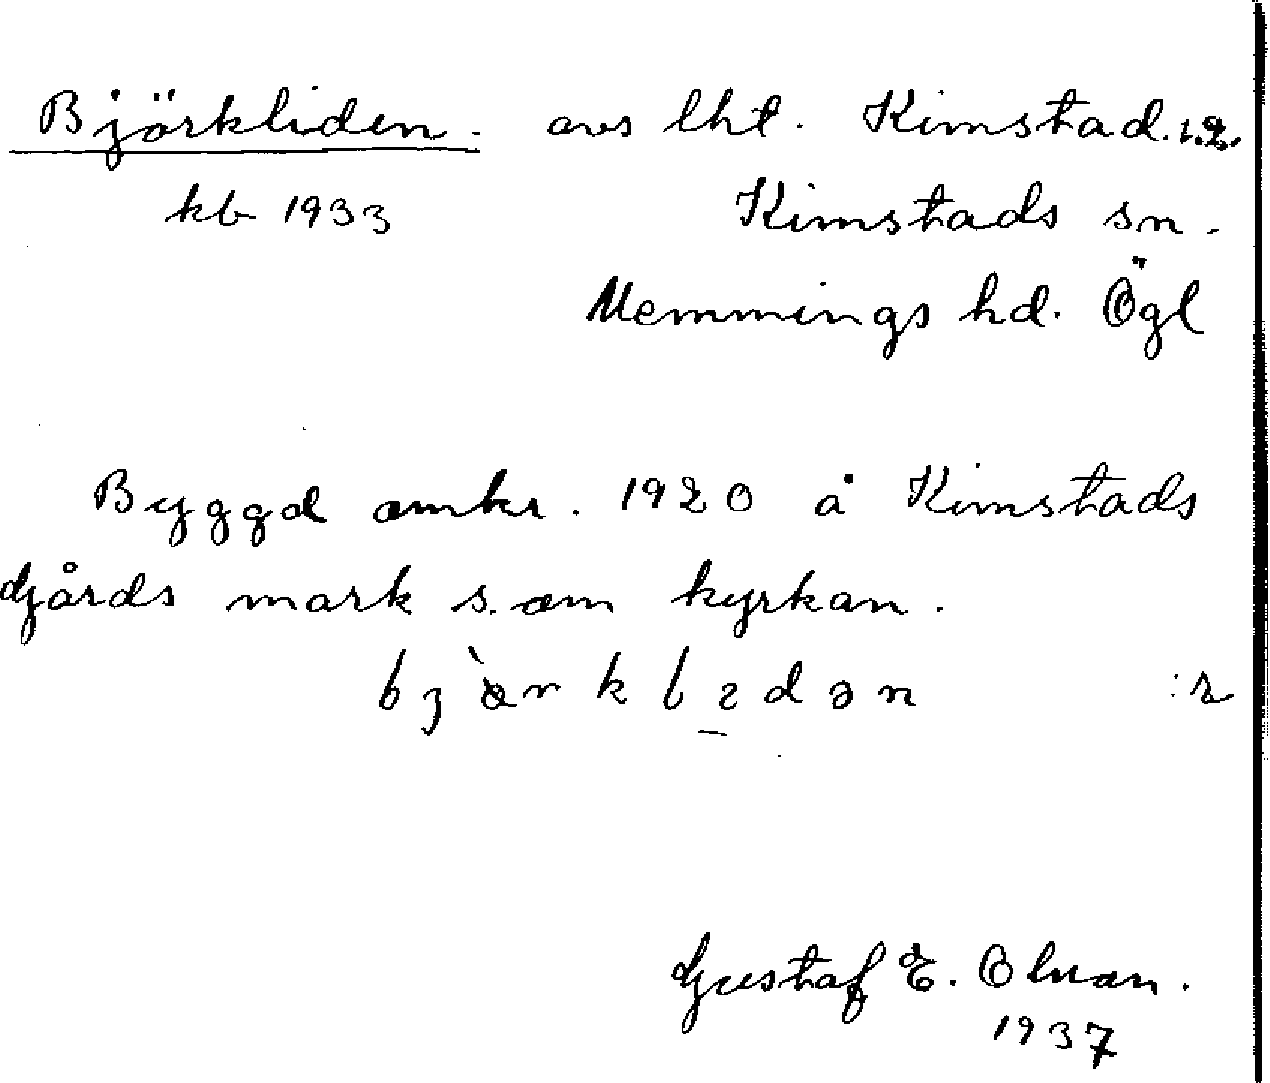 Björkliden. avs lht. Kimstad. 1.2.
kb 1933 Kimstads sn.
Memmings hd. Ögl
Byggd omkr. 1920 å Kimstads
Gårds mark s. om kyrkan.
:2
Gustaf E. Olman.
1937